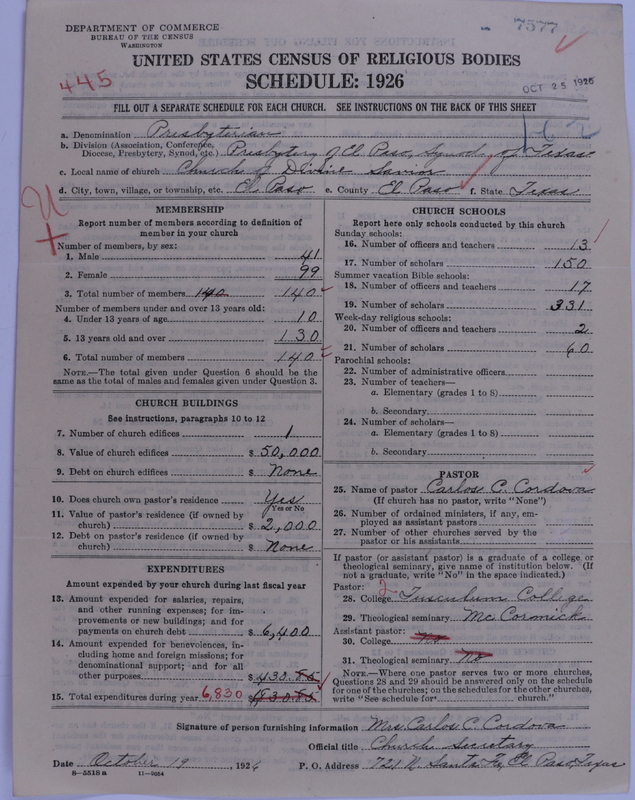 DEPARTMENT OF COMMERCE
BUREAU OF THE CENSUS
WASHINGTON
7577
UNITED STATES CENSUS OF RELIGIOUS BODIES
SCHEDULE: 1926
445
OCT 25 1926
FILL OUT A SEPARATE SCHEDULE FOR EACH CHURCH. SEE INSTRUCTIONS ON THE BACK OF THIS SHEET
a. Denomination Presbyterian
b. Division (Association, Conference, Diocese, Presbytery, Synod, etc.) Presbytery of El Paso, Synod of Texas
c. Local name of church Church of Divine Savior
d. City, town, village, or township, etc. El Paso e. County El Paso f. State Texas
MEMBERSHIP
Report number of members according to definition of
member in your church
Number of members, by sex:
1. Male 41
2. Female 99
3. Total number of members 140 140
Number of members under and over 13 years old:
4. Under 13 years of age 10
5. 13 years old and over 130
6. Total number of members 140
NOTE.—The total given under Question 6 should be
same as the total of males and females given under Question 3.
CHURCH BUILDINGS
See instructions, paragraphs 10 to 12
7. Number of church edifices 1
8. Value of church edifices $ 50,000
9. Debt on church edifices $ None
10. Does church own pastor's residence Yes
Yes or No
11. Value of pastor's residence (if owned by
church) $ 2,000
12. Debt on pastor's residence (if owned by
church) $ None
EXPENDITURES
Amount expended by your church during last fiscal year
13. Amount expended for salaries, repairs,
and other running expenses; for im-
provements or new buildings; and for
payments on church debt $ 6,400
14. Amount expended for benevolences, in-
cluding home and foreign missions; for
denominational support; and for all
other purposes $ 430.85
15. Total expenditures during year 6,830 $ 6830.85
CHURCH SCHOOLS
Report here only schools conducted by this church
Sunday schools:
16. Number of officers and teachers 13
17. Number of scholars 150
Summer vacation Bible schools:
18. Number of officers and teachers 17
19. Number of scholars 331
Week-day religious schools:
20. Number of officers and teachers 2
21. Number of scholars 60
Parochial schools:
22. Number of administrative officers
23. Number of teachers—
a. Elementary (grades 1 to 8)
b. Secondary
24. Number of scholars—
a. Elementary (grades 1 to 8)
b. Secondary
PASTOR
25. Name of pastor Carlos C. Cordova
(If church has no pastor, write "None")
26. Number of ordained ministers, if any, em-
ployed as assistant pastors
27. Number of other churches served by the
pastor or his assistants
If pastor (or assistant pastor) is a graduate of a college or
theological seminary, give name of institution below. (If
not a graduate, write "No" in the space indicated.)
Pastor: 2
28. College Tusculum College
29. Theological seminary McCormick
Assistant pastor:
30. College No
31. Theological seminary No
NOTE.—Where one pastor serves two or more churches,
Questions 28 and 29 should be answered only on the schedule
for one of the churches; on the schedules for the other churches,
write "See schedule for church."
Signature of person furnishing information Mrs Carlos C Cordova
Official title Church Secretary
Date October 19, 1926 P. O. Address 721 N. Santa Fe, El Paso, Texas
8—5518 a 11—9654